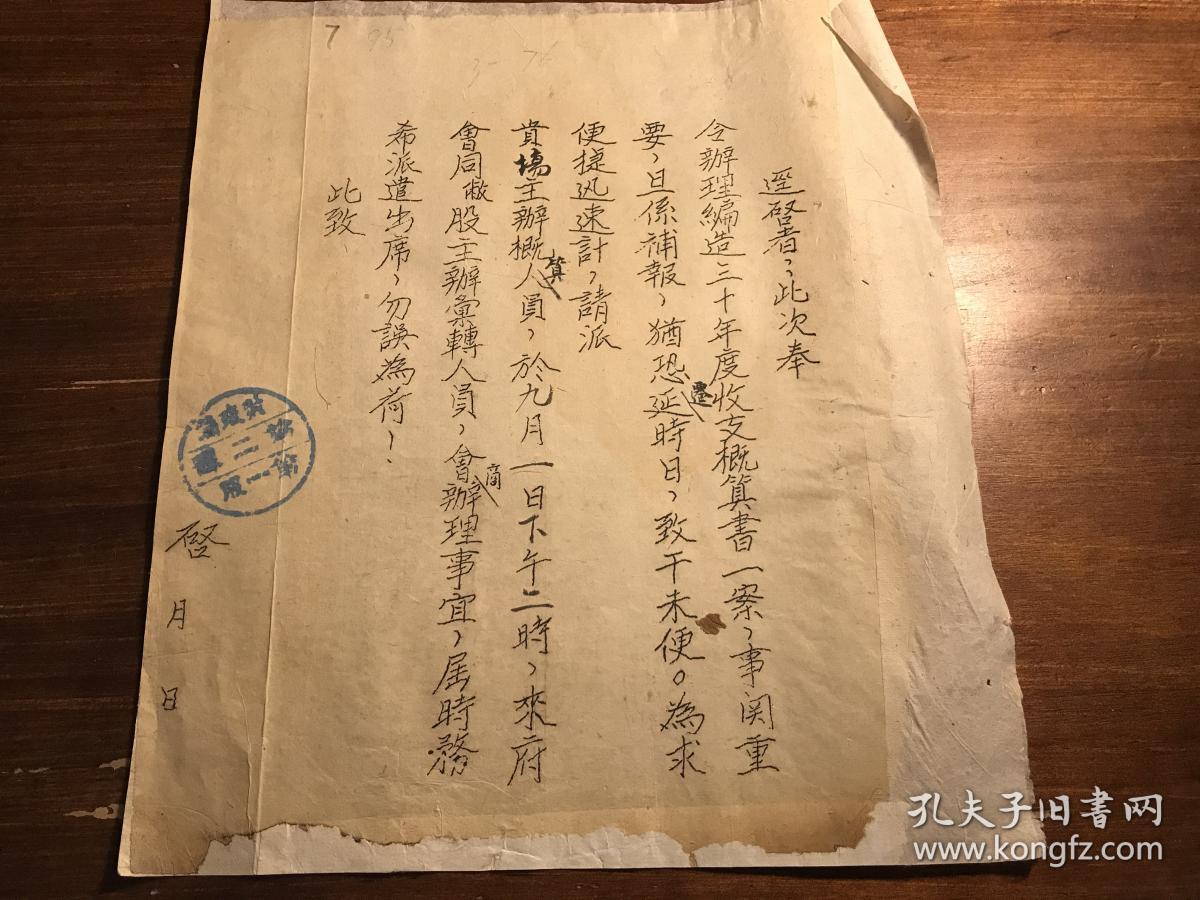 逕啓者、此次奉
令辦理編造三十年度收支概算書一案、事関重
要、且係補報、猶恐延遷時日、致干未便。為求
便捷迅速計、請派
貴場主辦概算人員、於九月一日下午二時、來府
會同敝股主辦彙轉人員、會商辦理事宜、屆時務
希派遣出席、勿誤為荷！
此致
啓
月
日
7
95
孔夫子旧书网
www.kongfz.com